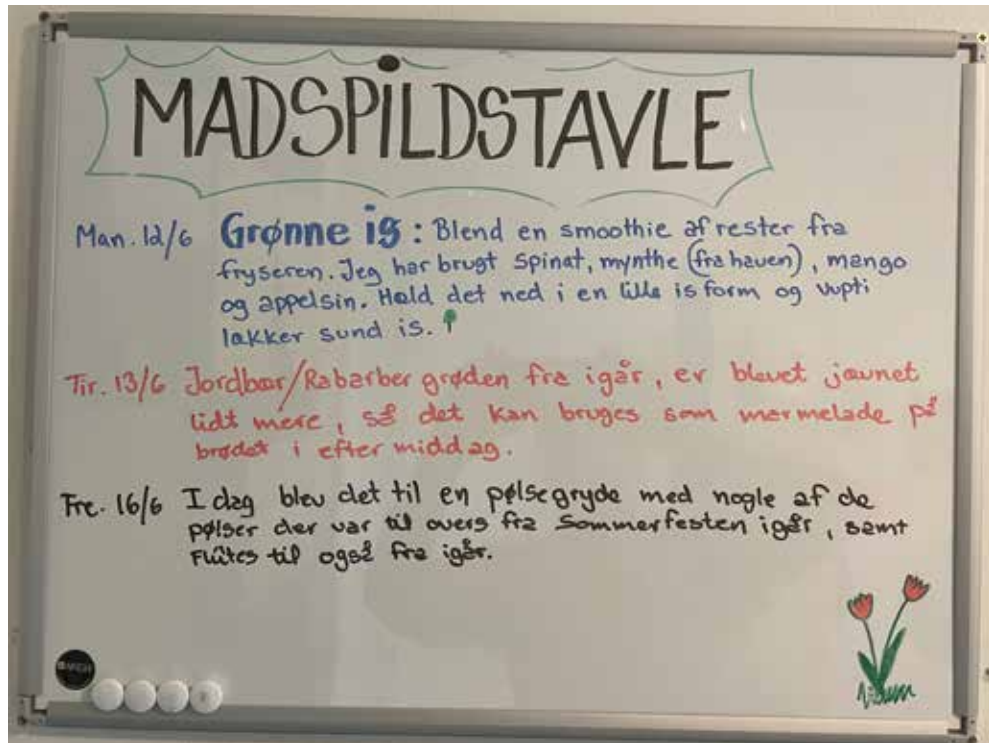 MADSPILDSTAVLE
Man. 12/6 Grønne is: Blend en smoothie af rester fra
fryseren. Jeg har brugt spinat, mynthe (fra haven), mango
og appelsin. Hæld det ned i en lille is form og vupti
lækker sund is.
Tir. 13/6 Jordbær/Rabarber grøden fra igår, er blevet jævnet
lidt mere, så det kan bruges som marmelade på
brødet i efter middag.
Fre. 16/6 I dag blev det til en pølsegryde med nogle af de
pølser der var til overs fra Sommerfesten igår, samt
Flûtes til også fra igår.